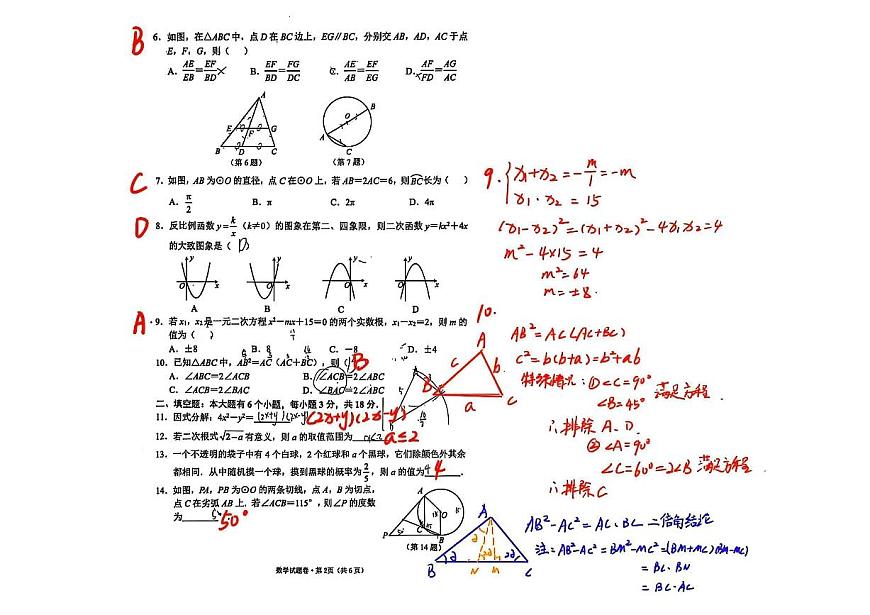 B
6．如图，在△ABC中，点D在BC边上，EG∥BC，分别交AB，AD，AC于点
E，F，G，则（ ）
A．AE/EB=EF/BD × B．EF/BD=FG/DC C．AE/AB=EF/EG D．AF/FD=AG/AC
A
E F G
B D C
（第6题）
B
O
A
C
（第7题）
C
7．如图，AB为⊙O的直径，点C在⊙O上，若AB=2AC=6，则BC长为（ ）
A．π/2 B．π C．2π D．4π
D
8．反比例函数y=k/x（k≠0）的图象在第二、四象限，则二次函数y=kx²+4x
的大致图象是（D）
A B C D
A
9．若x₁，x₂是一元二次方程x²-mx+15=0的两个实数根，x₁-x₂=2，则m的
值为（ ）
A．±8 B．8 C．-8 D．±4
10．已知△ABC中，AB²=AC（AC+BC），则（ ）B
A．∠ABC=2∠ACB B．∠ACB=2∠ABC
C．∠ACB=2∠BAC D．∠BAC=2∠ABC
二．填空题：本大题有6个小题，每小题3分，共18分．
11．因式分解：4x²-y²=(2x+y)(2x-y) (2x+y)(2x-y)
12．若二次根式√2-a有意义，则a的取值范围为 a≤2 a≤2
13．一个不透明的袋子中有4个白球，2个红球和a个黑球，它们除颜色外其余
都相同．从中随机摸一个球，摸到黑球的概率为2/5，则a的值为4 4．
14．如图，PA，PB为⊙O的两条切线，点A，B为切点，
点C在劣弧AB上．若∠ACB=115°，则∠P的度数
为 50°
A
O
C
P
B
（第14题）
数学试题卷·第2页（共6页）
9. x₁+x₂=-m/1=-m
x₁·x₂=15
(x₁-x₂)²=(x₁+x₂)²-4x₁x₂=4
m²-4×15=4
m²=64
m=±8.
10.
A
c b
B a C
AB²=AC(AC+BC)
c²=b(b+a)=b²+ab
特殊情况:①∠C=90°
∠B=45° 满足方程
∴排除A、D.
②∠A=90°
∠C=60°=2∠B 满足方程.
∴排除C
A
B N M C
AB²-AC²=AC·BC 二倍角结论
注:AB²-AC²=BM²-MC²=(BM+MC)(BM-MC)
=BC·BN
=BC·AC